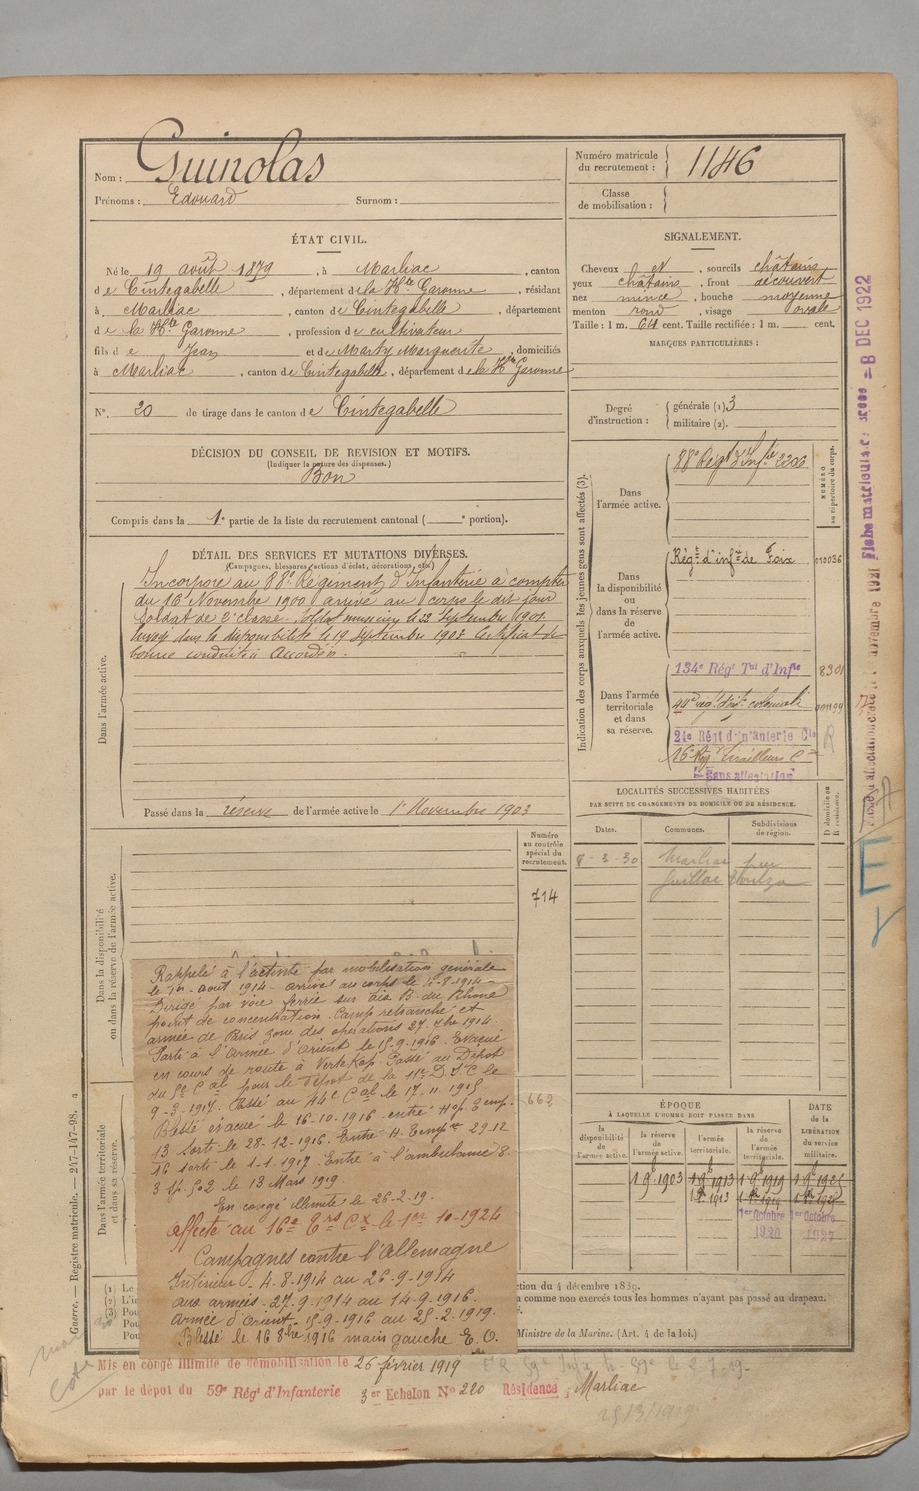 Nom : Guinolas
Prénoms : Edouard Surnom :
Numéro matricule du recrutement : 1146
Classe de mobilisation :
ÉTAT CIVIL.
Né le 19 août 1879, à Marliac, canton
de Cintegabelle, département de la Hte Garonne, résidant
à Marliac, canton de Cintegabelle, département
de la Hte Garonne, profession de cultivateur
fils de Jean et de Marty Marguerite, domiciliés
à Marliac, canton de Cintegabelle, département de la Hte Garonne
N° 20 de tirage dans le canton de Cintegabelle
SIGNALEMENT.
Cheveux et, sourcils châtains
yeux châtains, front découvert
nez mince, bouche moyenne
menton rond, visage ovale
Taille : 1 m. 64 cent. Taille rectifiée : 1 m. cent.
MARQUES PARTICULIÈRES :
Degré d'instruction : générale (1) 3
militaire (2).
DÉCISION DU CONSEIL DE REVISION ET MOTIFS.
(Indiquer la nature des dispenses.)
Bon
Compris dans la 1e partie de la liste du recrutement cantonal ( e portion).
DÉTAIL DES SERVICES ET MUTATIONS DIVERSES.
(Campagnes, blessures, actions d'éclat, décorations, etc.)
Dans l'armée active.
Incorporé au 88e Régiment d'Infanterie à compter
du 16 Novembre 1900 arrivé au corps le dit jour
Soldat de 2e classe. Soldat musicien le 22 Septembre 1901.
Envoyé dans la disponibilité le 19 Septembre 1903 Certificat de
bonne conduite "Accordé".
Passé dans la réserve de l'armée active le 1er Novembre 1903
Indication des corps auxquels les jeunes gens sont affectés (3).
NUMÉRO au répertoire du corps.
Dans l'armée active.
88e Régt d'Infie 2206
Dans la disponibilité ou dans la réserve de l'armée active.
Régt d'infie de Foix 010036
Dans l'armée territoriale et dans sa réserve.
134e Régt Tal d'Infie 8301
44e rég. d'inf. coloniale 001199
21e Régt d'infanterie Cle
16e Rég Tirailleurs Cx
"Sans affectation"
R
LOCALITÉS SUCCESSIVES HABITÉES
PAR SUITE DE CHANGEMENTS DE DOMICILE OU DE RÉSIDENCE.
Dates. Communes. Subdivisions de région. D domicile ou R résidence.
8-3-30 Marliac par
Gaillac Toulza
Dans la disponibilité ou dans la réserve de l'armée active.
Numéro au contrôle spécial du recrutement.
714
Dans l'armée territoriale et dans sa réserve.
662
Rappelé à l'activité par mobilisation générale
le 1er août 1914 - arrivé au corps le 4-8-1914 -
Dirigé par voie ferrée sur Aix B. du Rhône
point de concentration. Camp retranché et
armée de Paris zone des opérations 27. 7bre 1914.
Parti à l'Armée d'Orient le 15-9-1916. Evacué
en cours de route à Vertekop. Passé au Dépôt
du 5e Cal pour le dépôt de la 11e D.I.C le
9-3-1917. Passé au 44e Cal le 17.11.1915
Blessé évacué le 16-10-1916 entré Hop. Temp.
13 sorti le 28-12-1916. Entré H. Tempre 29.12
16 sorti le 1-1-1917. Entré à l'ambulance 8
3 Sp. 502 le 13 Mars 1919.
En congé illimité le 26-2-19.
affecté au 16e Trs Cx le 1er 10-1924
Campagnes contre l'Allemagne
Intérieur - 4-8-1914 au 26-9-1914
aux armées - 27-9-1914 au 14-9-1916.
armée d'Orient - 15-9-1916 au 25-2-1919.
Blessé le 16 8bre 1916 main gauche E.O.
ÉPOQUE
À LAQUELLE L'HOMME DOIT PASSER DANS
la disponibilité de l'armée active. la réserve de l'armée active. l'armée territoriale. la réserve de l'armée territoriale.
DATE de la LIBÉRATION du service militaire.
1 9b 1903 1 9b 1913 1 9b 1919
1er Octobre 1920 1er Octobre 1927
Guerre. — Registre matricule. — 247-147-98.
(1) Le
(2) L'in
(3) Pou
Pou
Pou
ction du 4 décembre 1889.
a comme non exercés tous les hommes n'ayant pas passé au drapeau.
Ministre de la Marine. (Art. 4 de la loi.)
Mis en congé illimité de démobilisation le 26 février 1919
par le dépôt du 59e Régt d'Infanterie 3er Echelon N° 220 Résidence, Marliac
25/3/1919.
8 DEC 1922